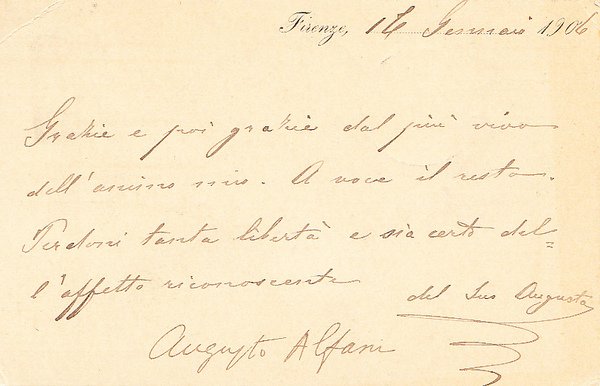 Firenze, 16 Gennaio 1906
Grazie e poi grazie dal più vivo
dell'animo mio. A voce il resto.
Perdoni tanta libertà e sia certo del=
l'affetto riconoscente
del Suo Augusto
Augusto Alfani